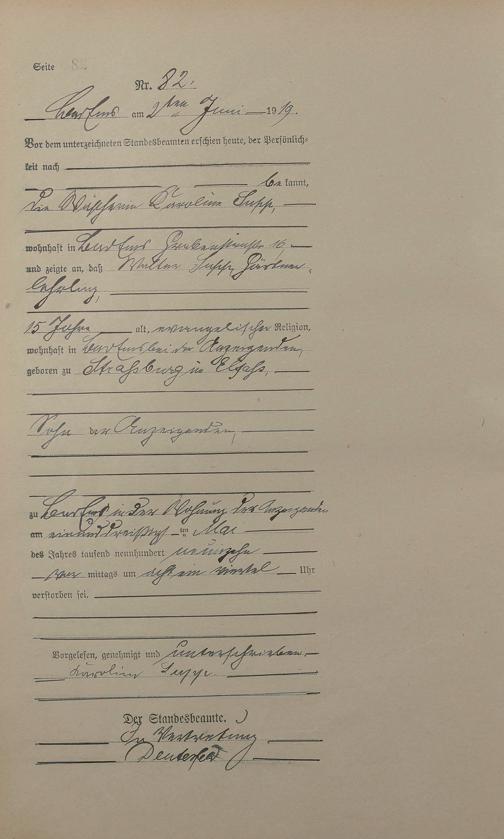 Seite 82
Nr. 82.
Bad Ems am 2ten Juni 1919.
Vor dem unterzeichneten Standesbeamten erschien heute, der Persönlich-
keit nach
be kannt,
die Karoline
wohnhaft in Bad Ems Grabenstraße 16
und zeigte an, daß Walter Gärtner-
lehrling,
15 Jahre alt, evangelischer Religion,
wohnhaft in Bad Ems bei der Anzeigenden,
geboren zu Straßburg im Elsaß,
Sohn der Anzeigenden,
zu Bad Ems in der Wohnung der Anzeigenden
am einunddreißigsten Mai
des Jahres tausend neunhundert neunzehn
vor mittags um acht ein viertel Uhr
verstorben sei.
Vorgelesen, genehmigt und unterschrieben.
Karoline
Der Standesbeamte.
In Vertretung